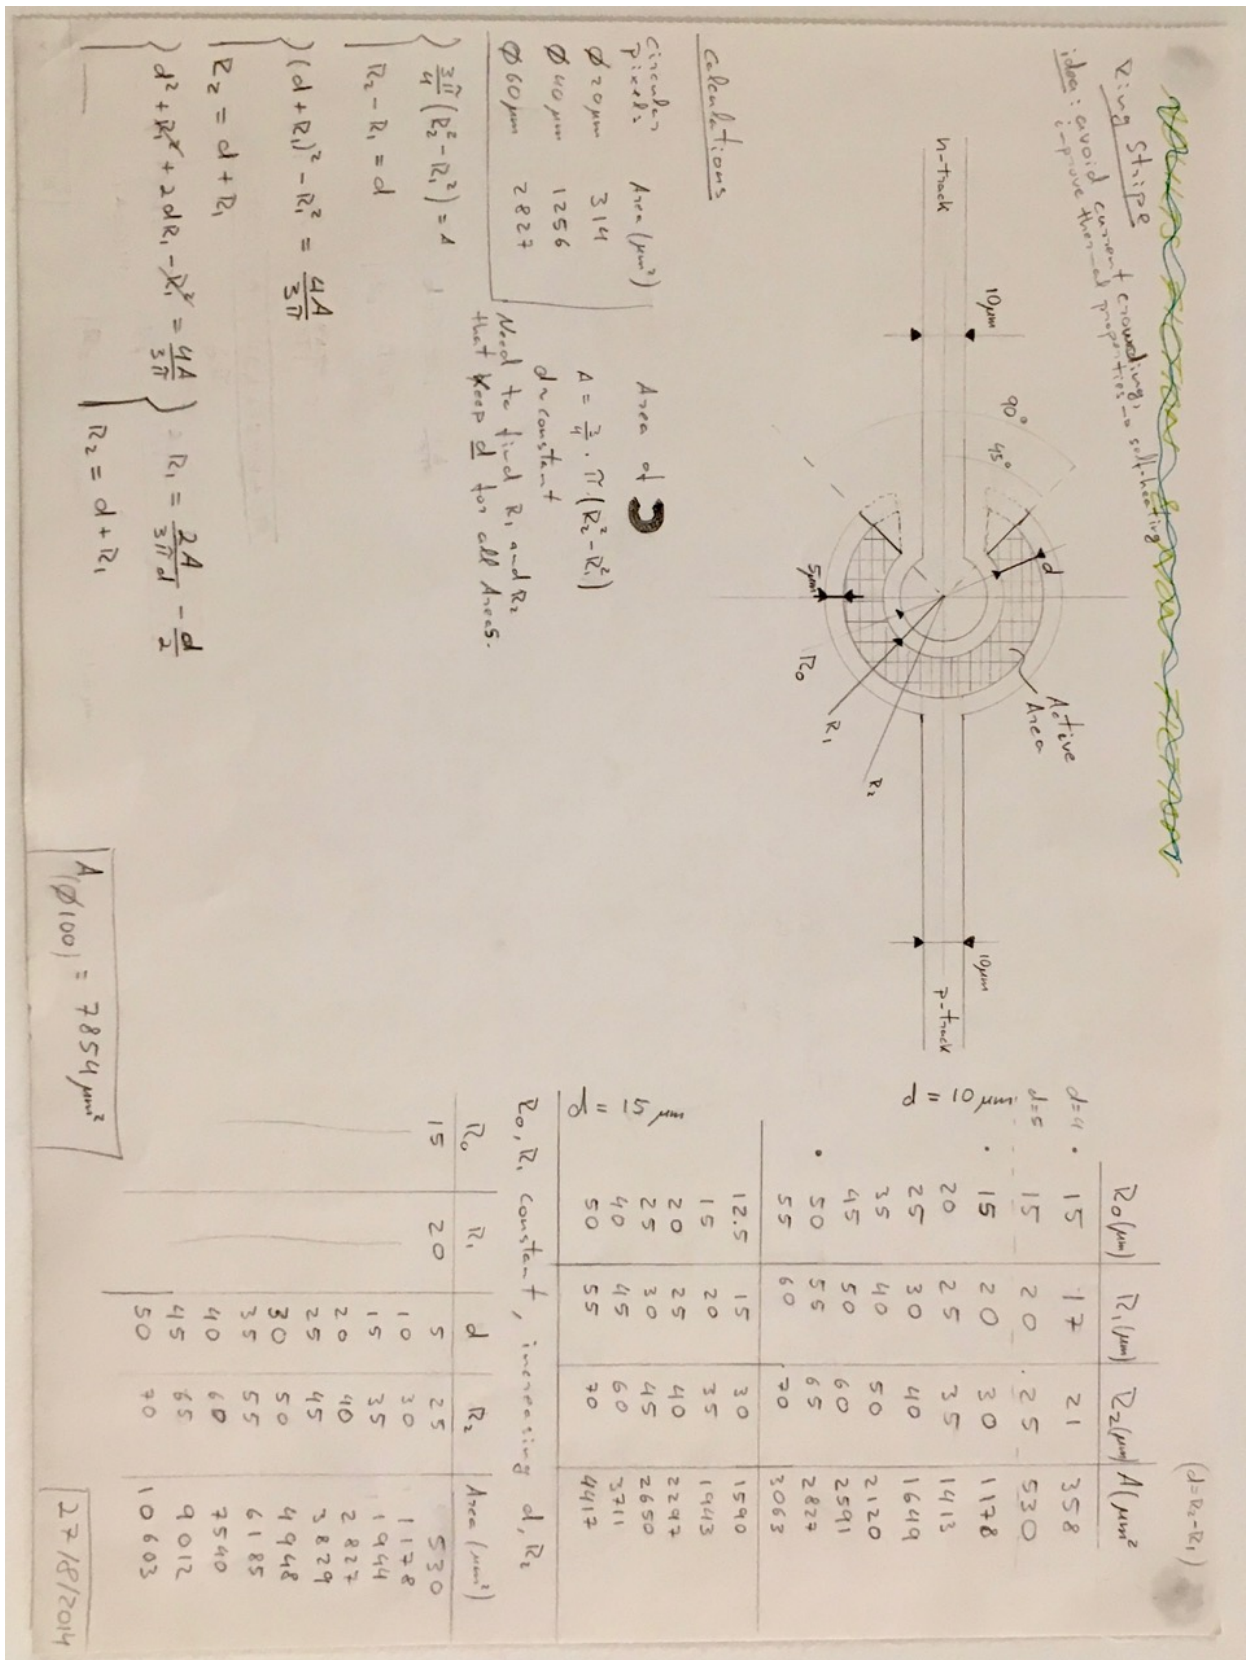 Ring Stripe
idea: avoid current crowding,
improve thermal properties → self-heating
n-track
10μm
90°
45°
d
5μm
R₀
R₁
R₂
Active
Area
10μm
p-track
Calculations
Circular
pixels Area (μm²)
Ø20μm 314
Ø40μm 1256
Ø60μm 2827
Area of
A = 3/4 · π · (R₂² - R₁²)
d ~ constant
Need to find R₁ and R₂
that keep d for all Areas.
3π/4 (R₂² - R₁²) = A
R₂ - R₁ = d
(d + R₁)² - R₁² = 4A/3π
R₂ = d + R₁
d² + R₁² + 2dR₁ - R₁² = 4A/3π
R₁ = 2A/3πd - d/2
R₂ = d + R₁
A(Ø100) = 7854 μm²
(d = R₂ - R₁)
R₀(μm) R₁(μm) R₂(μm) A(μm²
d=4 · 15 17 21 358
d=5 15 20 25 530
· 15 20 30 1178
20 25 35 1413
d = 10 μm 25 30 40 1649
35 40 50 2120
45 50 60 2591
· 50 55 65 2827
55 60 70 3063
12.5 15 30 1590
15 20 35 1943
20 25 40 2297
25 30 45 2650
40 45 60 3711
d = 15 μm 50 55 70 4417
R₀, R₁ constant, increasing d, R₂
R₀ R₁ d R₂ Area (μm²)
15 20 5 25 530
10 30 1178
15 35 1944
20 40 2827
25 45 3829
30 50 4948
35 55 6185
40 60 7540
45 65 9012
50 70 10603
27/8/2014